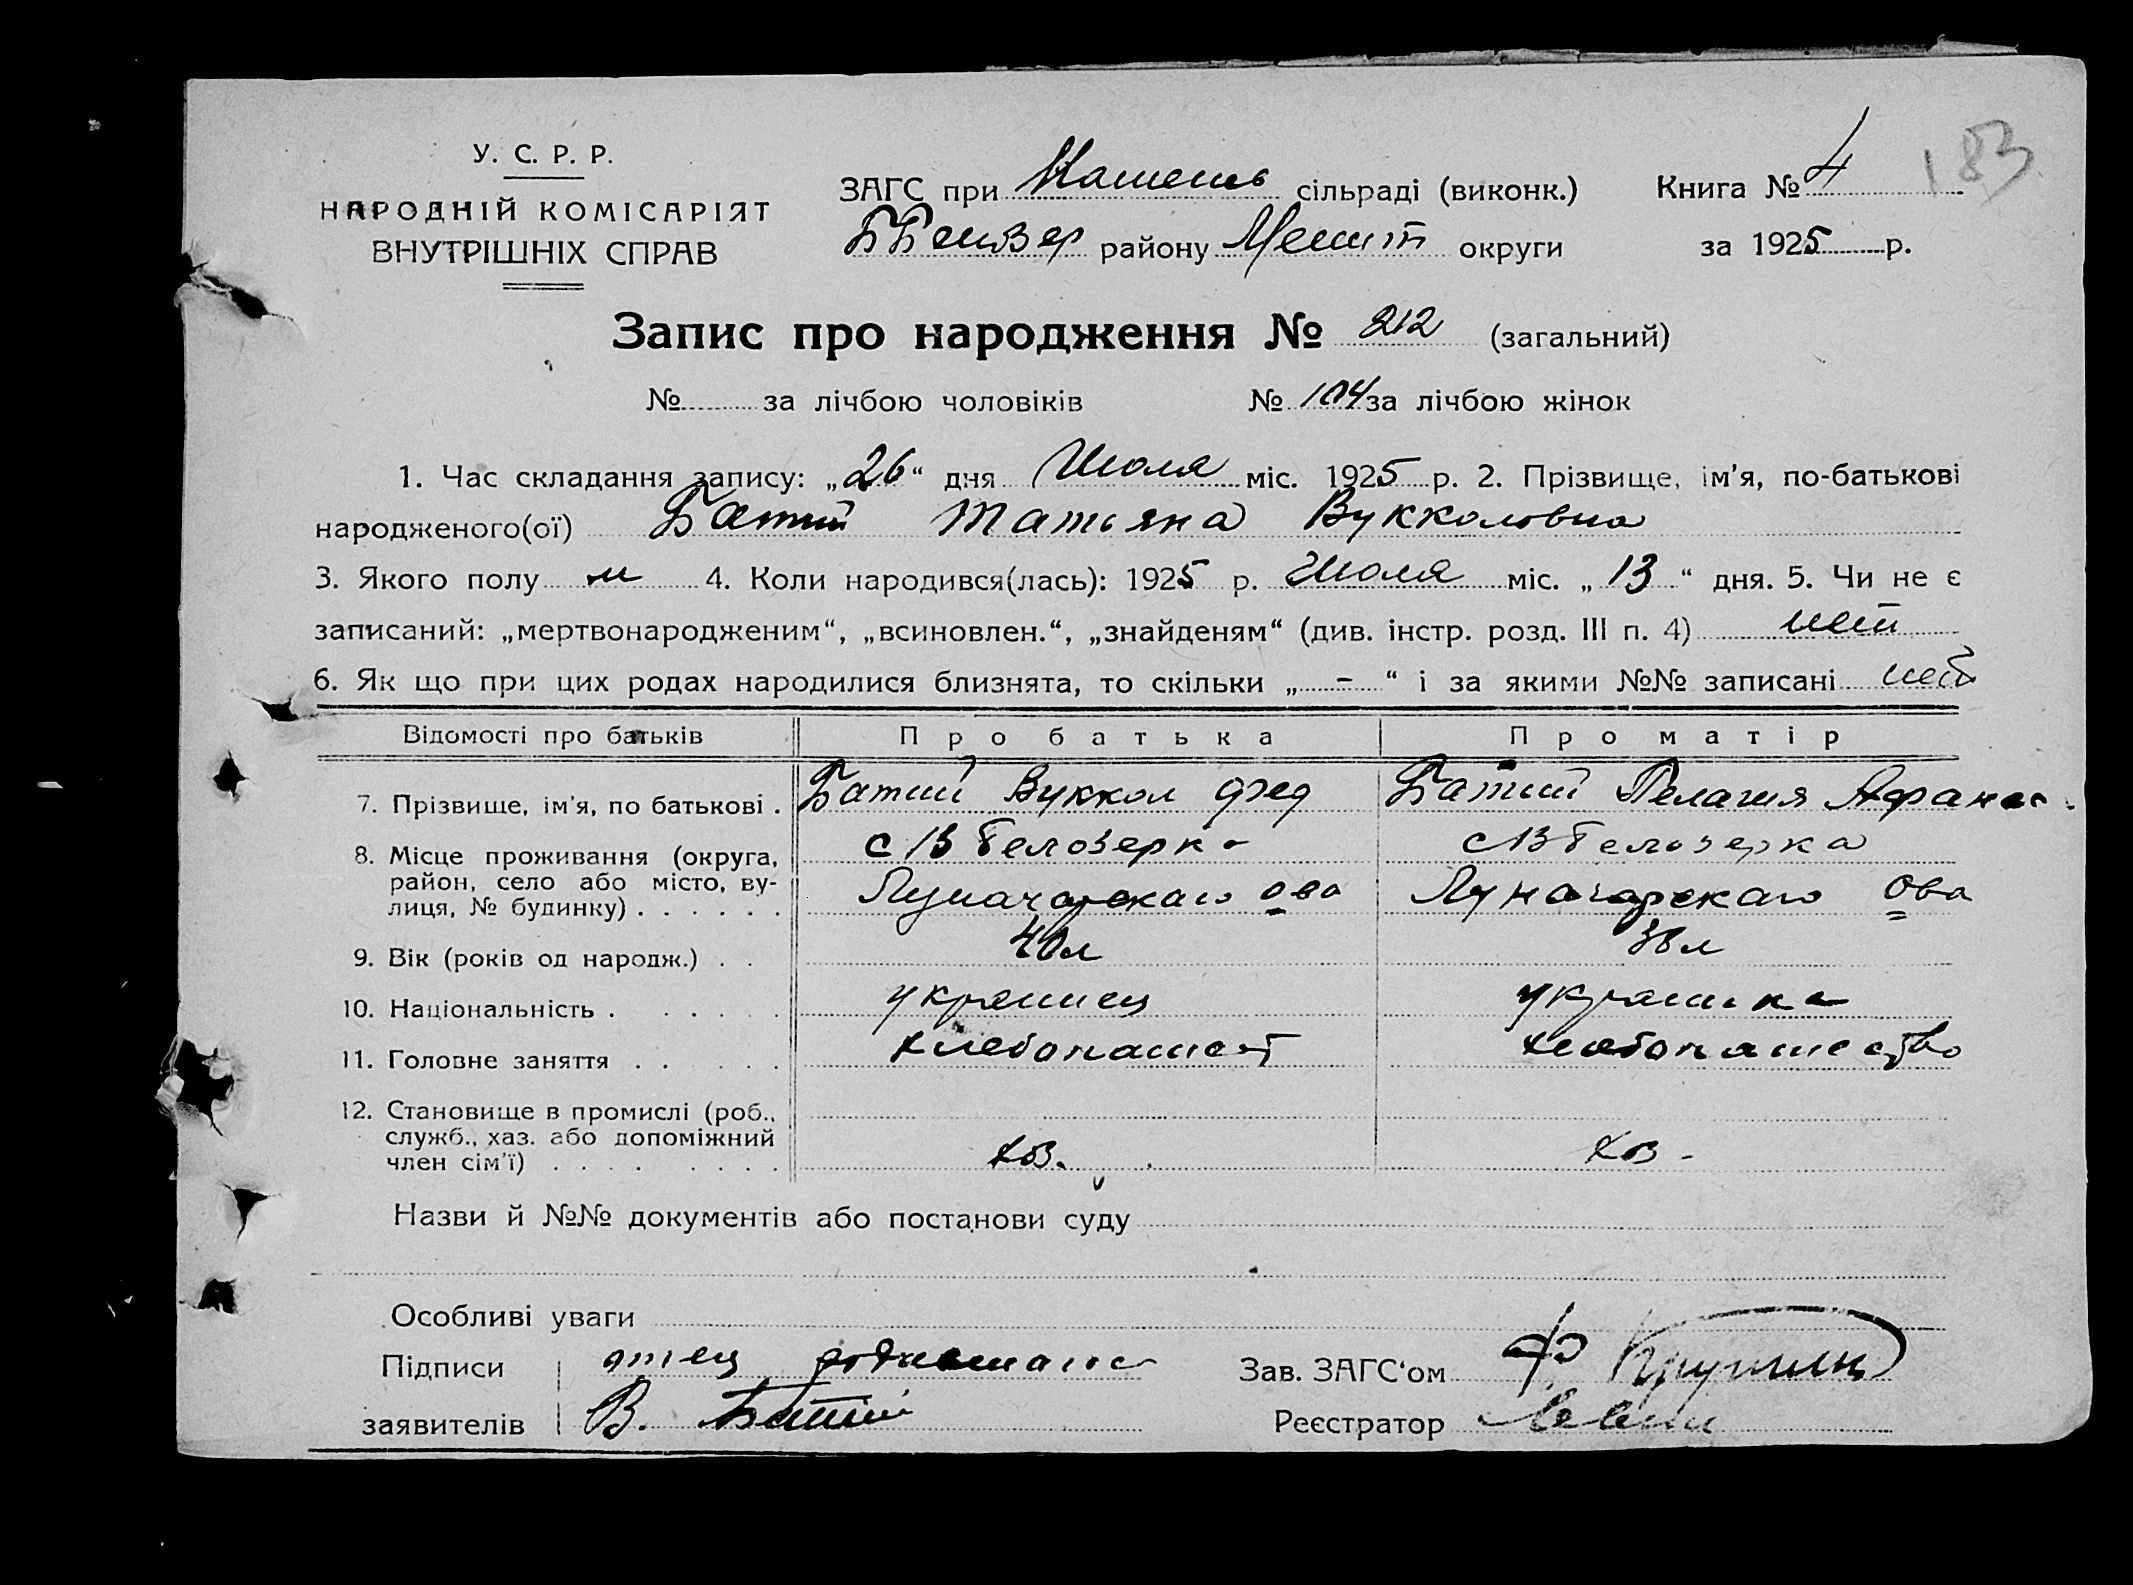 183
У. С. Р. Р.
НАРОДНІЙ КОМІСАРІЯТ
ВНУТРІШНІХ СПРАВ
ЗАГС при сільраді (виконк.)
району Мелит округи
Книга № 4
за 1925 р.
Запис про народження № 212 (загальний)
№ за лічбою чоловіків № 104 за лічбою жінок
1. Час складання запису: „26“ дня Июля міс. 1925 р. 2. Прізвище, ім'я, по-батькові
народженого(ої) Батий Татьяна Вукколовна
3. Якого полу 4. Коли народився(лась): 1925 р. Июля міс. „13“ дня. 5. Чи не є
записаний: „мертвонародженим“, „всиновлен.“, „знайденям“ (див. інстр. розд. III п. 4) нет
6. Як що при цих родах народилися близнята, то скільки „-“ і за якими №№ записані нет
Відомості про батьків Про батька Про матір
7. Прізвище, ім'я, по батькові . Батий Вуккол Фед Батий Пелагия Афанас.
8. Місце проживання (округа, с В Белозерка с В Белозерка
район, село або місто, ву-
лиця, № будинку) . . . . . . Луначарскаго ова Луначарскаго ова
9. Вік (років од народж.) . . 40 л 38 л
10. Національність . . . . . . украинец украинка
11. Головне заняття . . . . . хлебопашест хлебопашество
12. Становище в промислі (роб.,
служб., хаз. або допоміжний
член сім'ї) . . . . . . . . хоз. хоз -
Назви й №№ документів або постанови суду
Особливі уваги
Підписи отец
заявителів В. Батий
Зав. ЗАГС'ом
Реєстратор